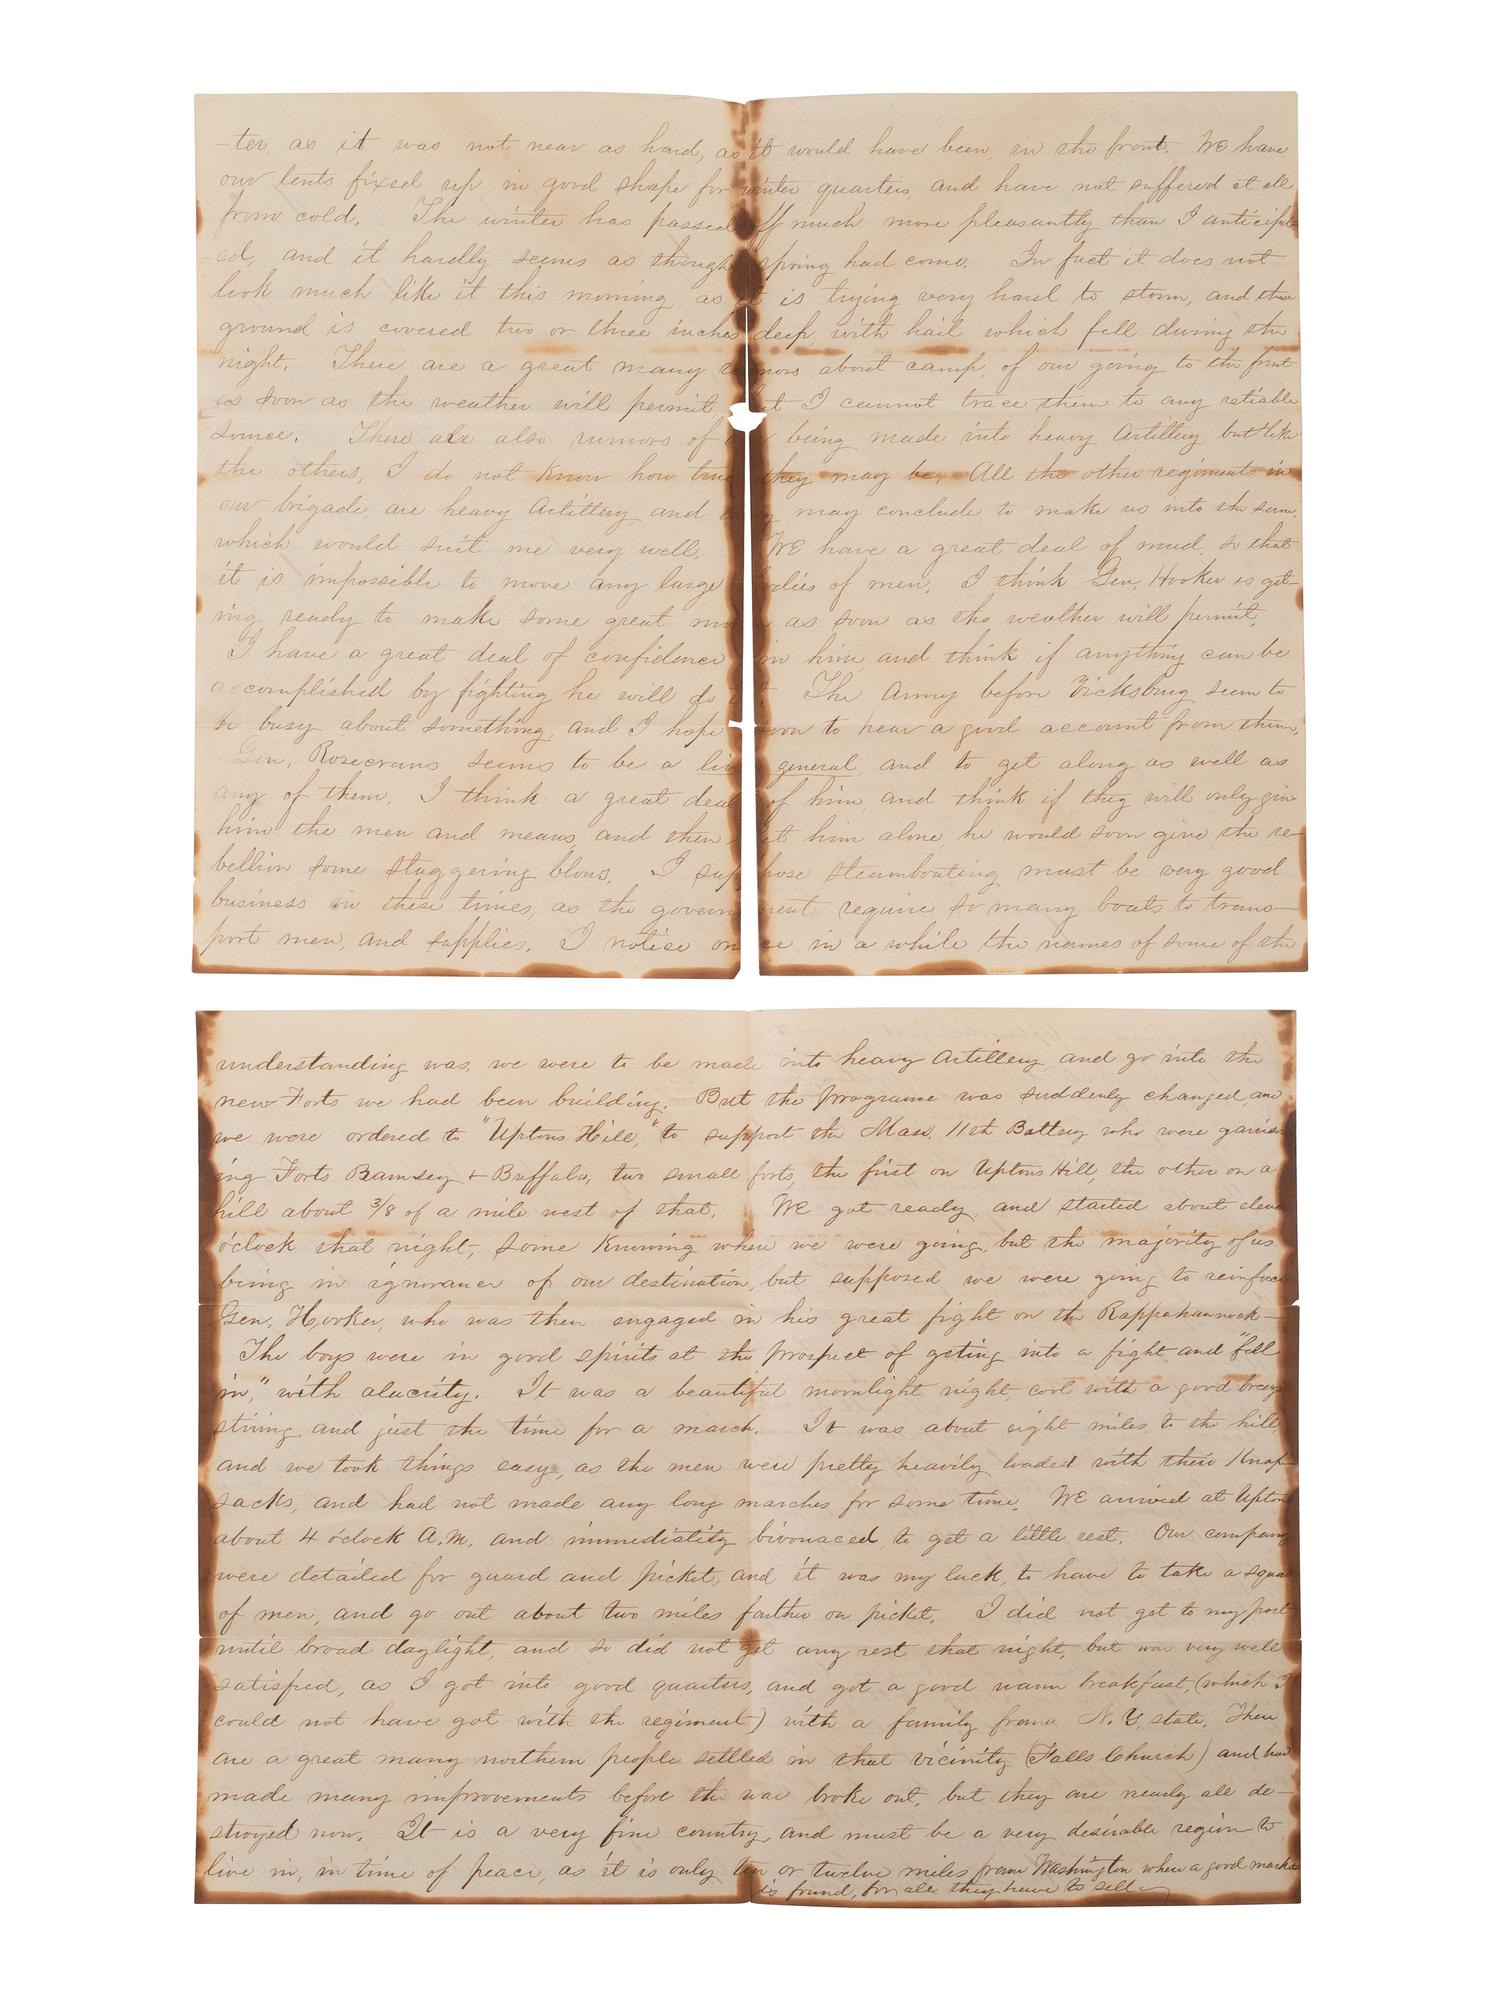 -ter, as it was not near as hard, as it would have been, in the front. We have
our tents fixed up in good shape for winter quarters, and have not suffered at all
from cold. The winter has passed off much more pleasantly than I anticipat
-ed, and it hardly seems as though spring had come. In fact it does not
look much like it this morning, as it is trying very hard to storm, and the
ground is covered two or three inches deep, with hail which fell during the
night. There are a great many rumors about camp, of our going to the front
as soon as the weather will permit, but I cannot trace them to any reliable
source. There are also rumors of our being made into heavy Artillery but like
the others, I do not know how true they may be. All the other regiments in
our brigade, are heavy Artillery, and may conclude to make us into the same,
which would suit me very well. We have a great deal of mud, so that
it is impossible to move any large bodies of men. I think Gen. Hooker is get-
ing ready to make some great as soon as the weather will permit.
I have a great deal of confidence in him, and think if anything can be
accomplished by fighting he will do it. The Army before Vicksburg seem to
be busy about something, and I hope soon to hear a good account from them.
Gen. Rosecrans seems to be a live general, and to get along as well as
any of them. I think a great deal of him, and think if they will only give
him the men and means, and then let him alone, he would soon give the re-
bellion some staggering blows. I suppose steamboating must be very good
business in these times, as the government require so many boats to trans-
port men, and supplies. I notice once in a while the names of some of the
understanding was, we were to be made into heavy Artillery and go into the
new Forts we had been building. But the programe was suddenly changed, and
we were ordered to "Uptons Hill," to support the Mass. 11th Battery who were garison
ing Forts Ramsey & Buffalo, two small forts, the first on Uptons Hill, the other on a
hill about 3/8 of a mile west of that. We got ready, and started about eleven
o'clock that night, some knowing where we were going, but the majority of us
being in ignorance of our destination, but supposed we were going to reinforce
Gen. Hooker, who was then engaged in his great fight on the Rappahannock—
The boys were in good spirits at the prospect of geting into a fight, and "fell
in," with alacrity. It was a beautiful moonlight night, cool with a good breeze
stiring, and just the time for a march. It was about eight miles to the hill,
and we took things easy, as the men were pretty heavily loaded with their Knap
sacks, and had not made any long marches for some time. We arrived at Uptons
about 4 o'clock A.M. and immediatity bivouaced, to get a little rest. Our company
were detailed for guard and picket, and it was my luck, to have to take a squad
of men, and go out about two miles farther on picket. I did not get to my post
until broad daylight, and so did not get any rest that night, but was very well
satisfied, as I got into good quarters, and got a good warm breakfast, (which I
could not have got with the regiment) with a family from N.Y. state. There
are a great many northern people settled in that vicinity (Falls Church) and had
made many improvements before the war broke out, but they are nearly all de-
stroyed now. It is a very fine country, and must be a very desirable region to
live in, in time of peace, as it is only ten or twelve miles from Washington where a good market
is found, for all they have to sell—